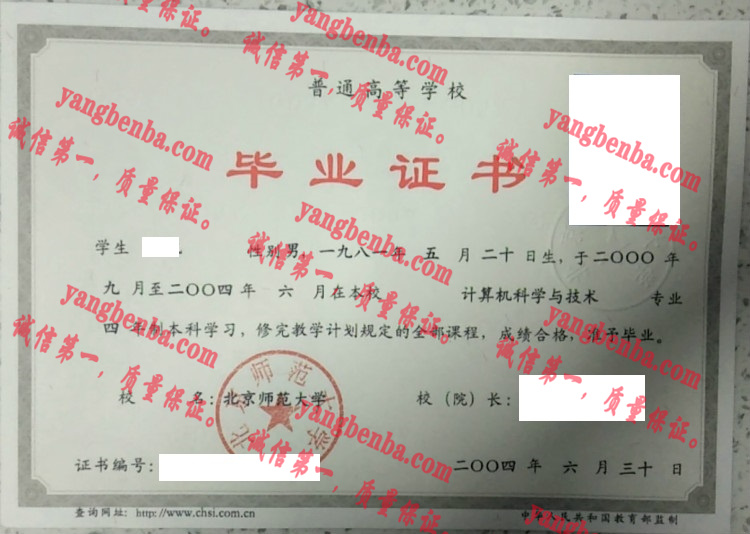 普通高等学校
毕业证书
学生 性别男，一九八一年 五 月 二十 日生，于二〇〇〇 年
九 月至二〇〇四年 六 月在本校 计算机科学与技术 专业
四 年制本科学习，修完教学计划规定的全部课程，成绩合格，准予毕业。
校 名：北京师范大学 校（院）长：
北京师范大学
证书编号： 二〇〇四 年 六 月 三十 日
查询网址：http://www.chsi.com.cn 中华人民共和国教育部监制
yangbenba.com
诚信第一，质量保证。
yangbenba.com
诚信第一，质量保证。
yangbenba.com
诚信第一，质量保证。
yangbenba.com
诚信第一，质量保证。
yangbenba.com
诚信第一，质量保证。
yangbenba.com
诚信第一，质量保证。
yangbenba.com
诚信第一，质量保证。
yangbenba.com
诚信第一，质量保证。
yangbenba.com
诚信第一，质量保证。